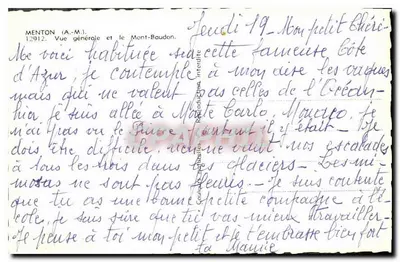 MENTON (A.-M.).
12912. Vue générale et le Mont-Baudon.
Jeudi 19 - Mon petit Chéri
Me voici habituée sur cette fameuse Côte
d'Azur, je contemple à mon aise les vagues
mais qui ne valent pas celles de l'Océan-
hier, je suis allée à Monte Carlo, Monaco, je
n'ai pas vu le Prince, pourtant il y était - Je
dois être difficile, rien ne vaut nos escalades
à tous les trois dans les glaciers - Les mi-
mosas ne sont pas fleuris - je suis contente
que tu as une bonne petite compagne à l'é-
cole, je suis sûre que tu vas mieux travailler -
Je pense à toi mon petit et je t'embrasse bien fort
ta Mamie
Reproduction interdite